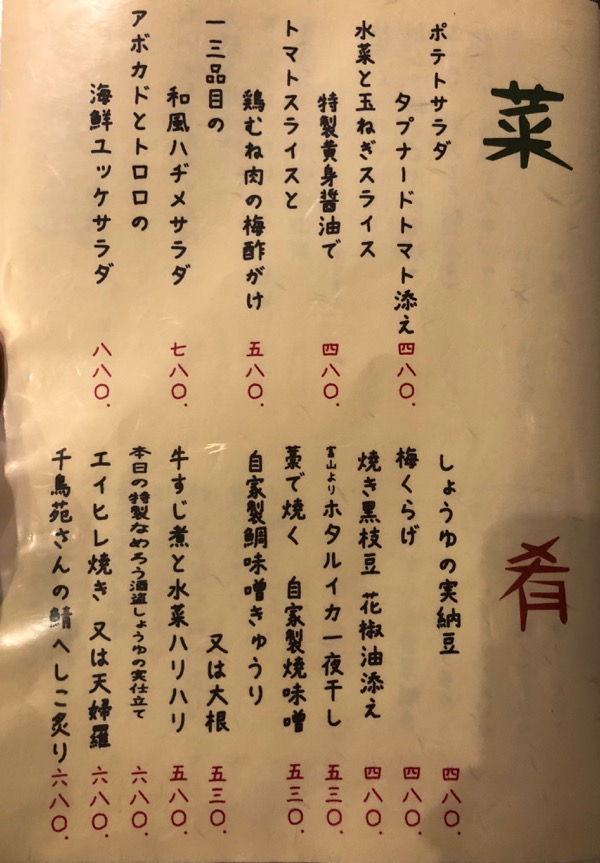 菜
ポテトサラダ
タプナードトマト添え 四八〇.
水菜と玉ねぎスライス
特製黄身醤油で 四八〇.
トマトスライスと
鶏むね肉の梅酢がけ 五八〇.
一三品目の
和風ハヂメサラダ 七八〇.
アボカドとトロロの
海鮮ユッケサラダ 八八〇.
肴
しょうゆの実納豆 四八〇.
梅くらげ 四八〇.
焼き黒枝豆 花椒油添え 四八〇.
富山よりホタルイカ一夜干し 五三〇.
藁で焼く 自家製焼味噌 五三〇.
自家製鯛味噌きゅうり
又は大根 五三〇.
牛すじ煮と水菜ハリハリ 五八〇.
本日の特製なめろう酒盗しょうゆの実仕立て 六八〇.
エイヒレ焼き 又は天婦羅 六八〇.
千鳥苑さんの鯖へしこ炙り 六八〇.